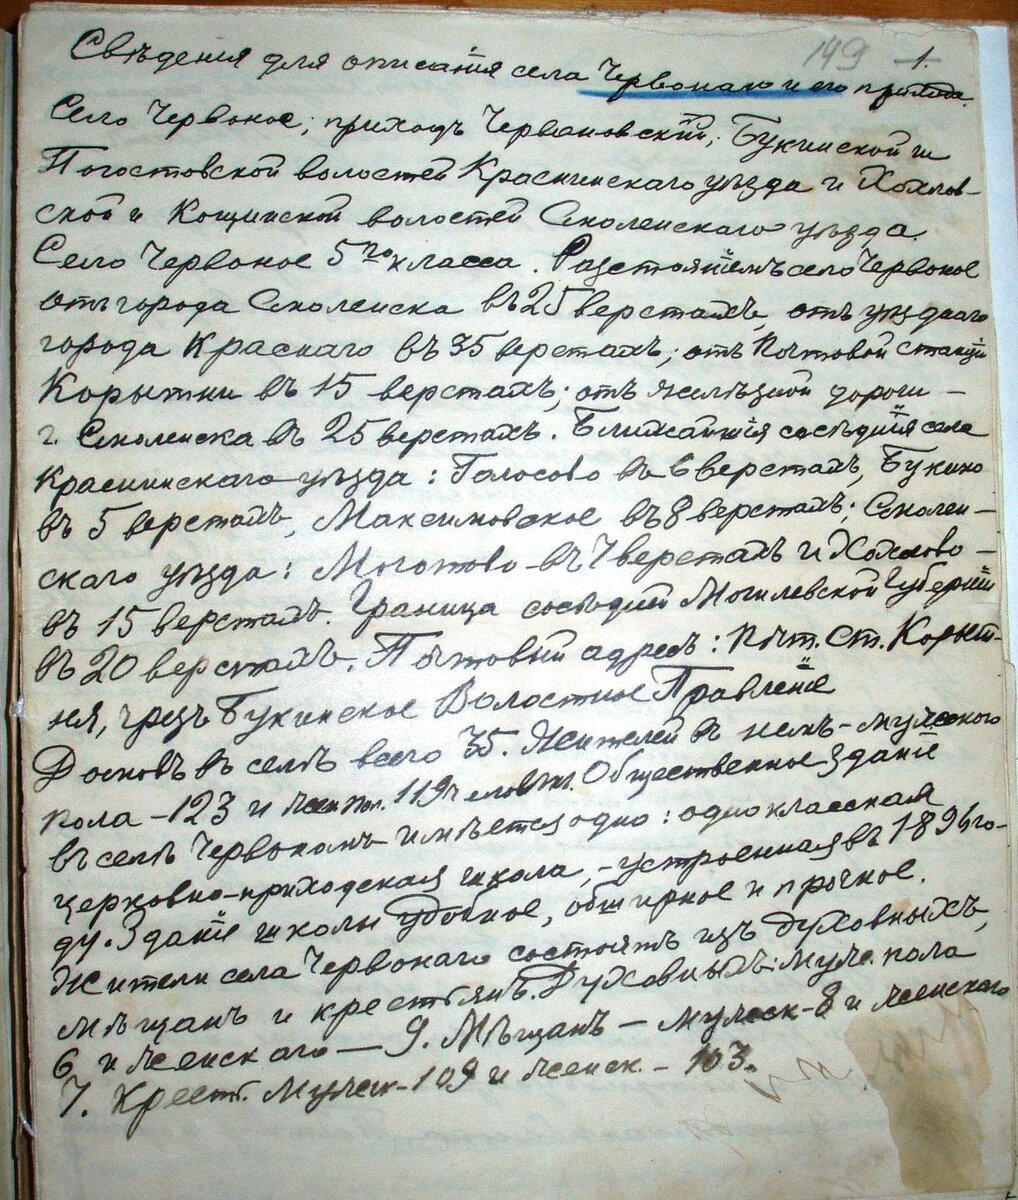 149 1.
Свѣдения для описанія села Червонаго и его прихода.
Село Червоное; приходъ Червоновскій; Букинской и
Погостовской волостей Краснинскаго уѣзда и Хохлов-
ской и Кощинской волостей Смоленскаго уѣзда.
Село Червоное 5го класса. Разстояніемъ село Червоное
отъ города Смоленска въ 25 верстахъ, отъ уѣзднаго
города Краснаго въ 35 верстахъ; отъ Почтовой станціи
Корытни въ 15 верстахъ; отъ желѣзной дороги –
г. Смоленска въ 25 верстахъ. Ближайшія сосѣднія села
Краснинскаго уѣзда: Голосово въ 6 верстахъ, Букино
въ 5 верстахъ, Максимовское въ 8 верстахъ; Смолен-
скаго уѣзда: въ 7 верстахъ и Хохлово –
въ 15 верстахъ. Граница сосѣдней Могилевской Губерніи
въ 20 верстахъ. Почтовый адресъ: Почт. Ст. Корыт-
ня, чрезъ Букинское Волостное Правленіе
Домовъ въ селѣ всего 35. Жителей въ немъ – мужеского
пола – 123 и женск. пол. 119 человѣк. Общественное зданіе
въ селѣ Червономъ имѣется одно: одноклассная
церковно-приходская школа, – устроенная въ 1896 го-
ду. Зданіе школы удобное, обширное и прочное.
Жители села Червонаго состоятъ изъ духовныхъ,
мѣщанъ и крестьянъ. Духовныхъ: муж. пола
6 и женскаго – 9. Мѣщанъ – мужеск – 8 и женскаго
7. Крест. мужск – 109 и женск. – 103.